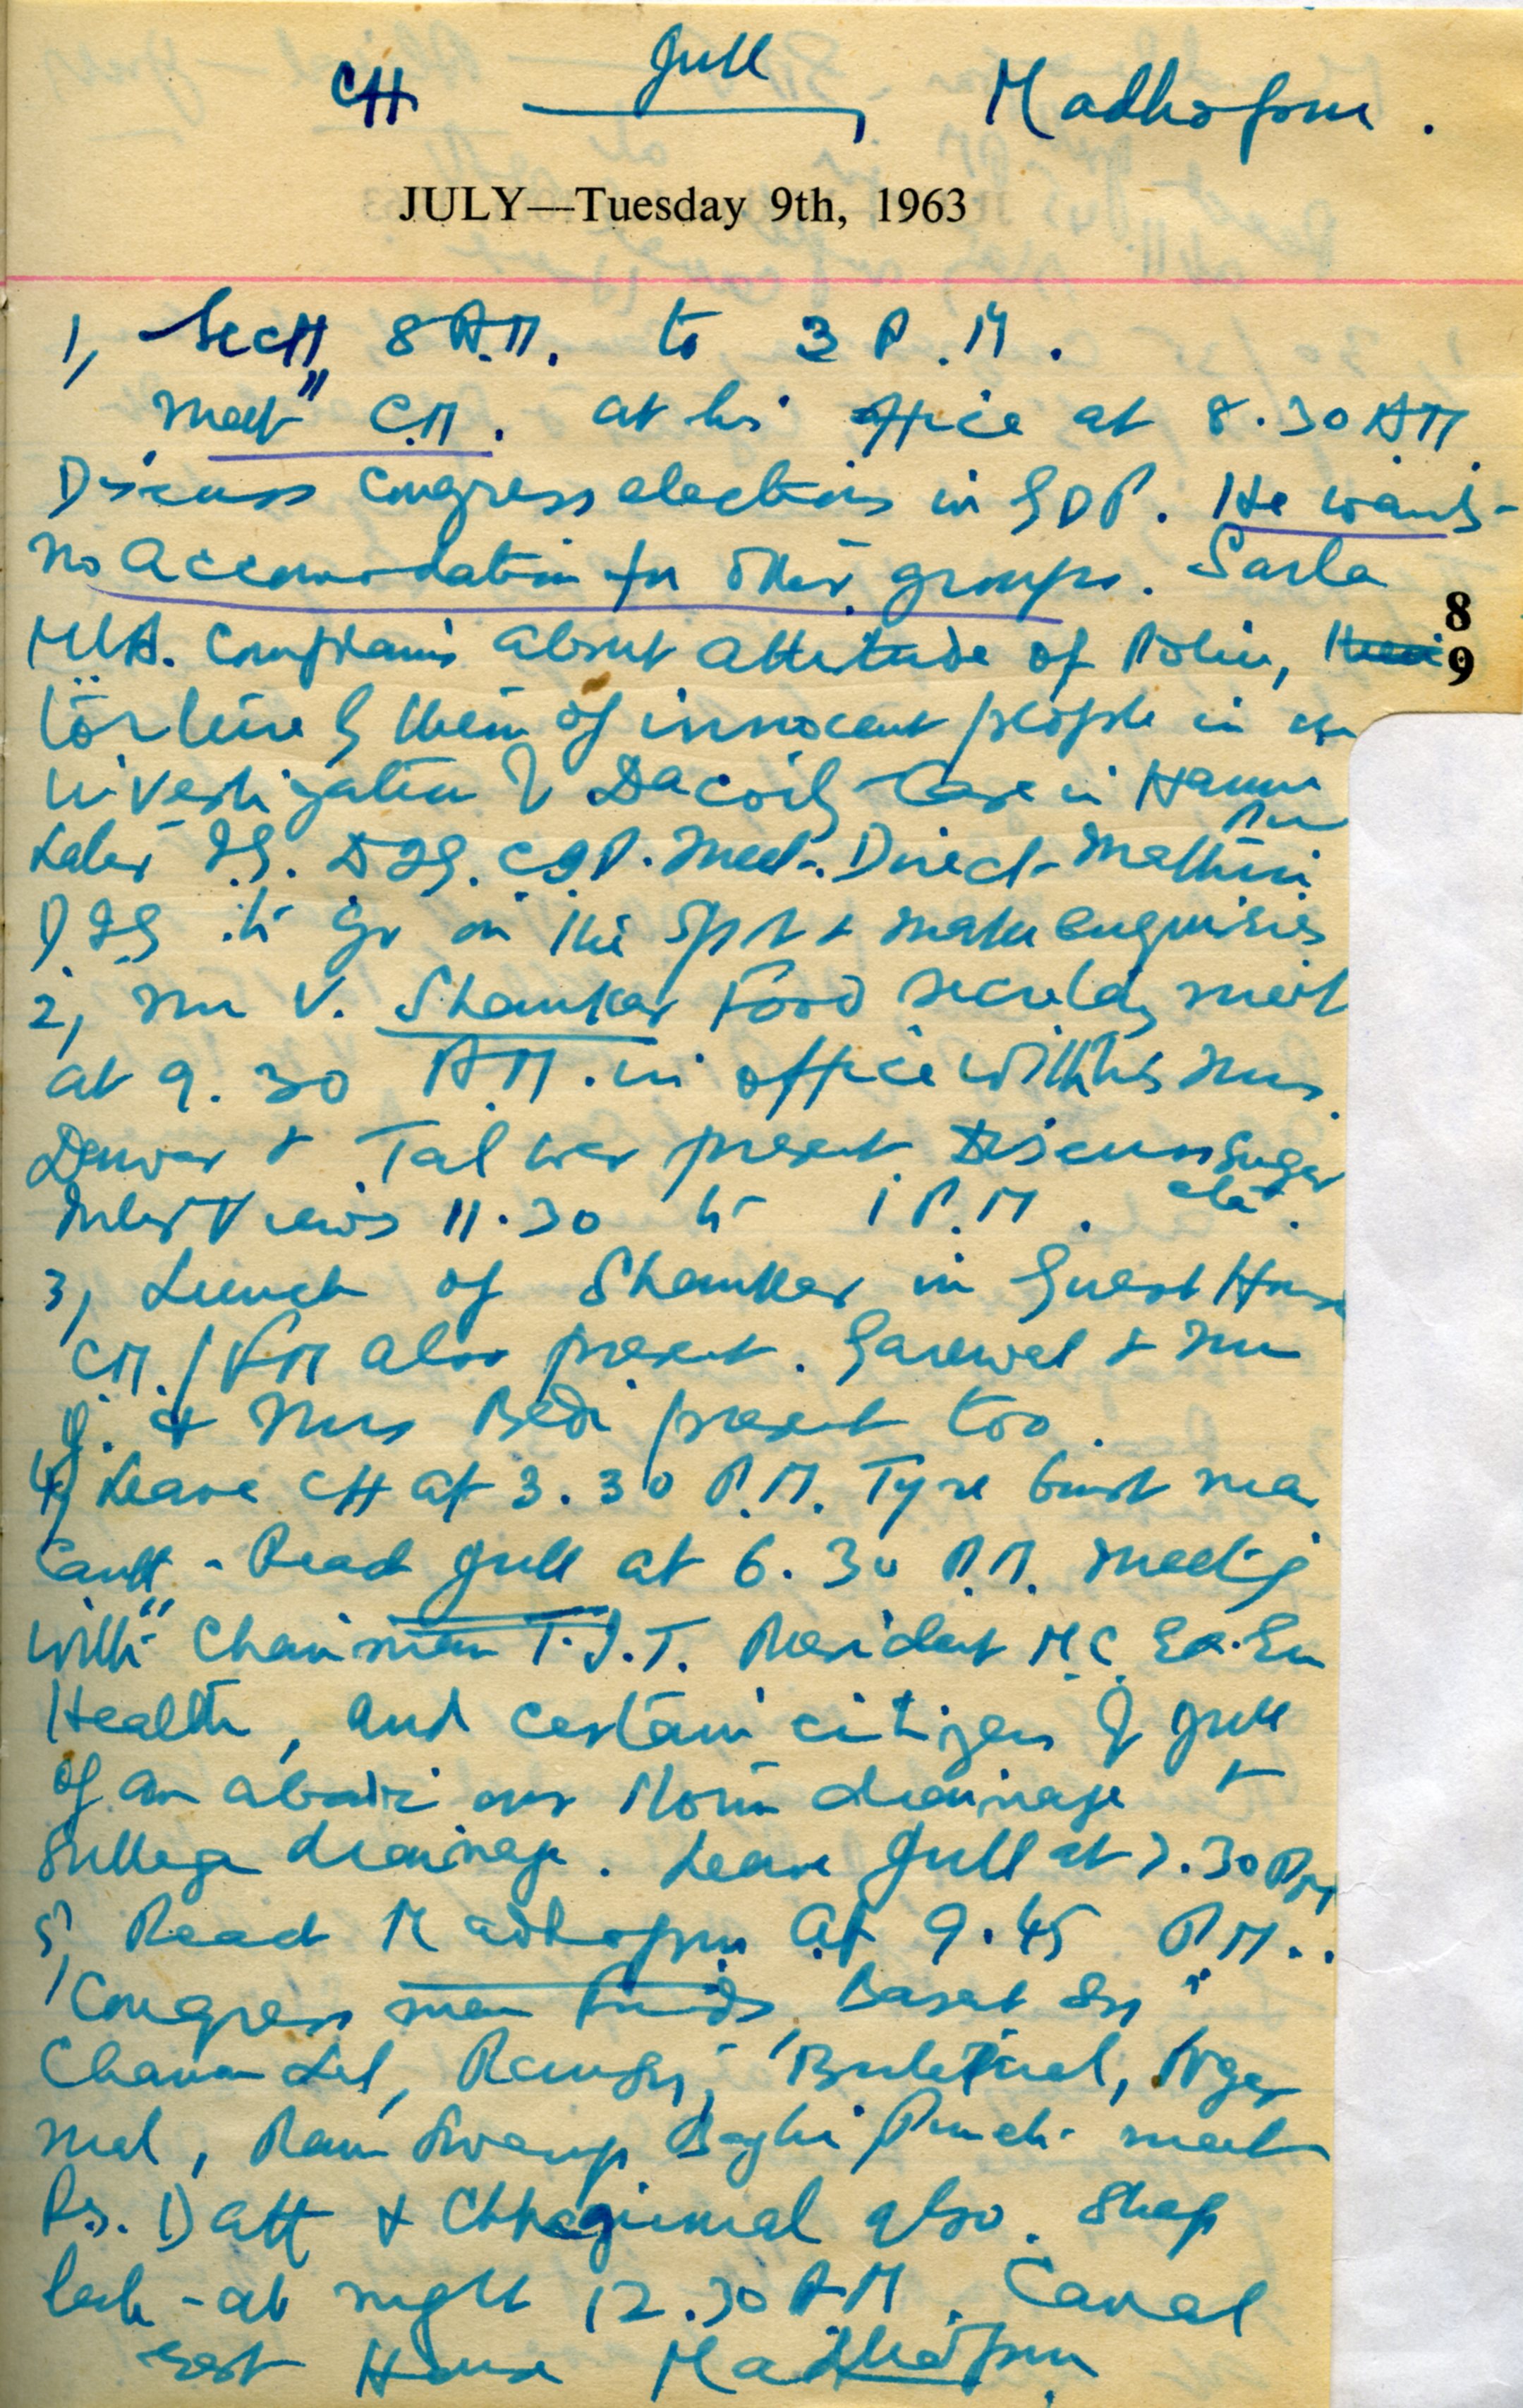 CH Jull Madhopur.
JULY—Tuesday 9th, 1963
1, Sectt 8 A.M. to 3 P.M.
Meet C.M. at his office at 8.30 AM.
Discuss Congress elections in GDP. He wants
no accomodation for other groups. Sarla
8
MLA. Complains about attitude of Police,
9
torture of innocent people in
investigation of Dacoity Case in
Later I.G. DIG. meet. Direct
DIG to go on the spot & make enquiries
2, Mr V. Shankar Food Secretary meet
at 9.30 AM. in office with Mrs.
& present. Discuss Sugar
etc.
Interviews 11.30 to 1 P.M.
3, Lunch of Shanker in Guest House
CM./FM also present. Garewal & Mr
& Mrs Bedi present too.
4, Leave CH at 3.30 P.M. Tyre burst near
Cantt - Reach Jull at 6.30 P.M. Meeting
with Chairman T.I.T. President M.C. Ex. En
Health, and certain citizens of Jull
of an over storm drainage &
Sullage drainage. Leave Jull at 7.30 PM
5, Reach Madhopur at 9.45 P.M..
Congress men friends
Chaman Lal,
Mal, Ram Swarup meet
Datt & also. Sleep
late at night 12.30 AM. Canal
Rest House Madhopur.